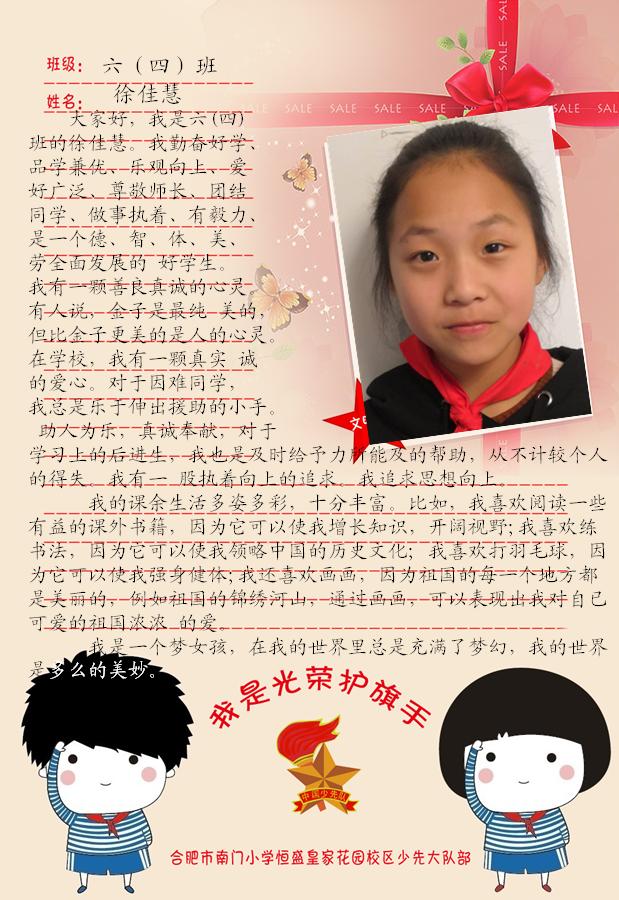 SALE
SALE SALE SALE SALE SALE SALE
班级: 六(四)班
姓名: 徐佳慧
大家好,我是六(四)
班的徐佳慧。我勤奋好学、
品学兼优、乐观向上、爱
好广泛、尊敬师长、团结
同学、做事执着、有毅力、
是一个德、智、体、美、
劳全面发展的 好学生。
我有一颗善良真诚的心灵,
有人说,金子是最纯 美的,
但比金子更美的是人的心灵。
在学校,我有一颗真实 诚
的爱心。对于困难同学,
我总是乐于伸出援助的小手。
助人为乐,真诚奉献,对于
学习上的后进生,我也是及时给予力所能及的帮助,从不计较个人
的得失。我有一 股执着向上的追求。我追求思想向上。
我的课余生活多姿多彩,十分丰富。比如,我喜欢阅读一些
有益的课外书籍,因为它可以使我增长知识,开阔视野;我喜欢练
书法,因为它可以使我领略中国的历史文化; 我喜欢打羽毛球,因
为它可以使我强身健体;我还喜欢画画,因为祖国的每一个地方都
是美丽的,例如祖国的锦绣河山,通过画画,可以表现出我对自己
可爱的祖国浓浓 的爱。
我是一个梦女孩,在我的世界里总是充满了梦幻,我的世界
是多么的美妙。
我是光荣护旗手
中国少先队
合肥市南门小学恒盛皇家花园校区少先大队部